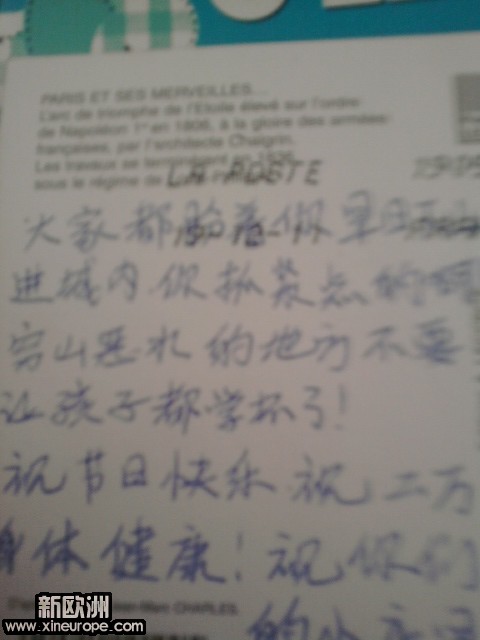 PARIS ET SES MERVEILLES...
L'arc de triomphe de l'Etoile élevé sur l'ordre
de Napoléon 1er en 1806, à la gloire des armées
françaises, par l'architecte Chalgrin.
Les travaux se
sous le régime de
LA POSTE
大家都盼着你早日
进城内 你抓紧点
穷山恶水的地方不要
让孩子都学坏了!
祝节日快乐 祝 二万
身体健康! 祝你们
的
Jean-Marc CHARLES
新欧洲
www.xineurope.com